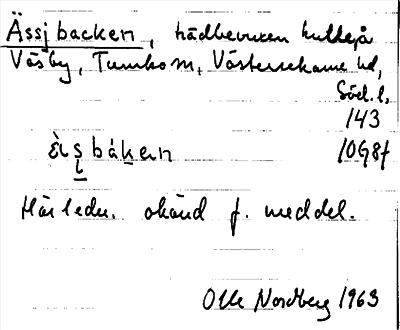 Ässjbacken, trädbevuxen kulle på
Väsby, Tumbo sn, Västerrekarne hd,
Söd. l,
143
10G8f
ä̀sbákɛn
Härledn. okänd f. meddel.
Olle Nordberg 1963